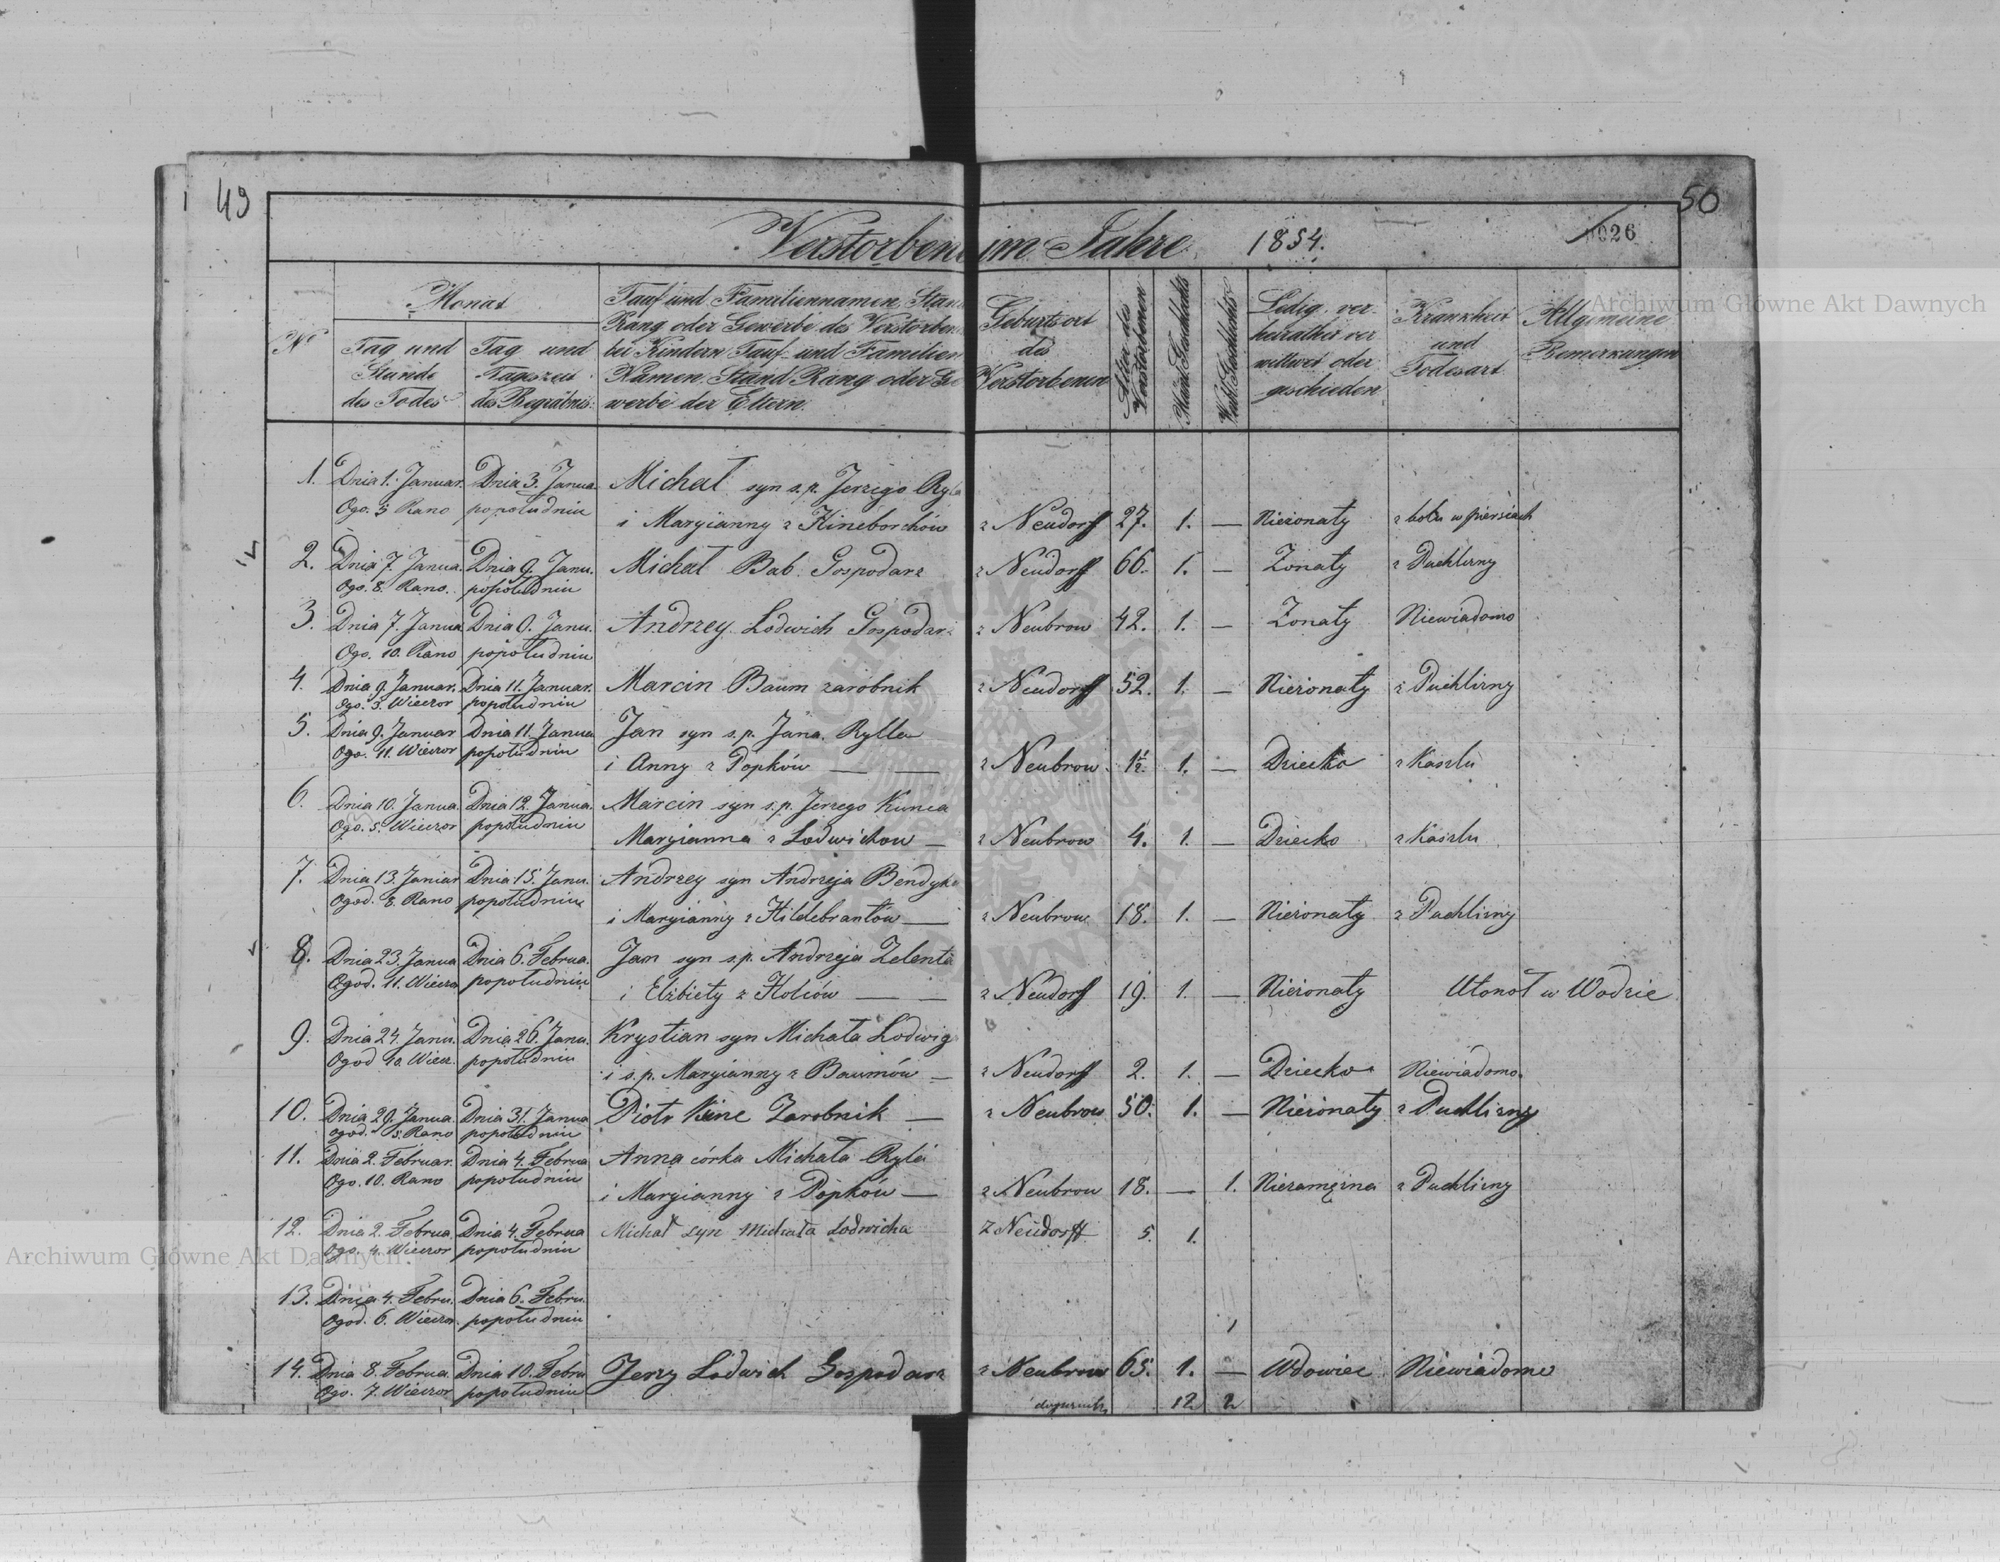 49
50
Verstorbene im Jahre 1854.
026
Archiwum Główne Akt Dawnych
No
Monat
Tag und Stunde des Todes
Tag und Tageszeit des Begräbnis.
Tauf und Familiennamen, Stand
Rang oder Gewerbe des Verstorbenen
bei Kindern Tauf- und Familien
Namen, Stand Rang oder Ge
werbe der Eltern.
Geburtsort des Verstorbenen
Alter des Verstorbenen
Mänl. Geschlechts
Weibl. Geschlechts
Ledig, ver-
heirathet ver
wittwet oder
geschieden
Krankheit und Todesart
Allgemeine Bemerkungen
1. Dnia 1. Januar. Dnia 3. Janua. Michał syn s.p. Jerzego Ryla
Ogo. 3 Rano popołudniu i Maryianny z Kineborchów z Neudorff 27. 1. — Nieżonaty z bolu w piersiach
2. Dnia 7. Janua. Dnia 9. Janu. Michał Bab Gospodarz z Neudorff 66. 1. — Zonaty z Puchliny
Ogo. 8. Rano. popołudniu
3. Dnia 7. Janua Dnia 9. Janu. Andrzey Lodwich Gospodarz z Neubrow 42. 1. — Zonaty Niewiadomo
Ogo. 10. Rano popołudniu
4. Dnia 9. Januar. Dnia 11. Januar. Marcin Baum zarobnik z Neudorff 52. 1. — Nieżonaty z Puchliny
Ogo. 3. Wieczor popołudniu
5. Dnia 9. Januar Dnia 11. Janua Jan syn s.p. Jana Rylla
Ogo. 11. Wieczor popołudniu i Anny z Popków — — z Neubrow 1½. 1. — Dziecko z Kaszlu
6. Dnia 10. Janua. Dnia 12. Janua. Marcin syn s.p. Jerzego Kunca
Ogo. 5. Wieczor popołudniu Maryianna z Lodwichow — z Neubrow 4. 1. — Dziecko z Kaszlu
7. Dnia 13. Januar Dnia 15. Janu. Andrzey syn Andrzeja Bendyka
Ogod. 8. Rano popołudniu i Maryianny z Hildebrantów — z Neubrow 18. 1. — Nieżonaty z Puchliny
8. Dnia 23. Janua Dnia 6. Februa. Jan syn s.p. Andrzeja Zelenta
Ogod. 11. Wieczo popołudniu i Elżbiety z Holców — — z Neudorff 19. 1. — Nieżonaty Utonoł w Wodzie
9. Dnia 24. Janu. Dnia 26. Janu. Krystian syn Michała Lodwig
Ogod 10. Wiecz. popołudniu i s.p. Maryianny z Baumów — z Neudorff 2. 1. — Dziecko Niewiadomo.
10. Dnia 29. Janua. Dnia 31. Janua Piotr Kinc Zarobnik — z Neubrow 50. 1. — Nieżonaty z Puchliny
ogod. 5. Rano popołudniu
11. Dnia 2. Februar. Dnia 4. Februa Anna córka Michała Ryla
Ogo. 10. Rano popołudniu i Maryianny z Popków — z Neubrow 18. — 1. Niezamężna z Puchliny
12. Dnia 2. Februa. Dnia 4. Februa Michał syn Michała Lodwicha z Neudorff 5. 1.
Ogo. 4. Wieczor popołudniu
Archiwum Główne Akt Dawnych
13. Dnia 4. Febru. Dnia 6. Febru.
Ogod. 6. Wieczor popołudniu 1
14. Dnia 8. Februa. Dnia 10. Febru Jerzy Lodwich Gospodarz z Neubrow 65. 1. — Wdowiec Niewiadomo
Ogo. 7. Wieczor popołudniu 12 2